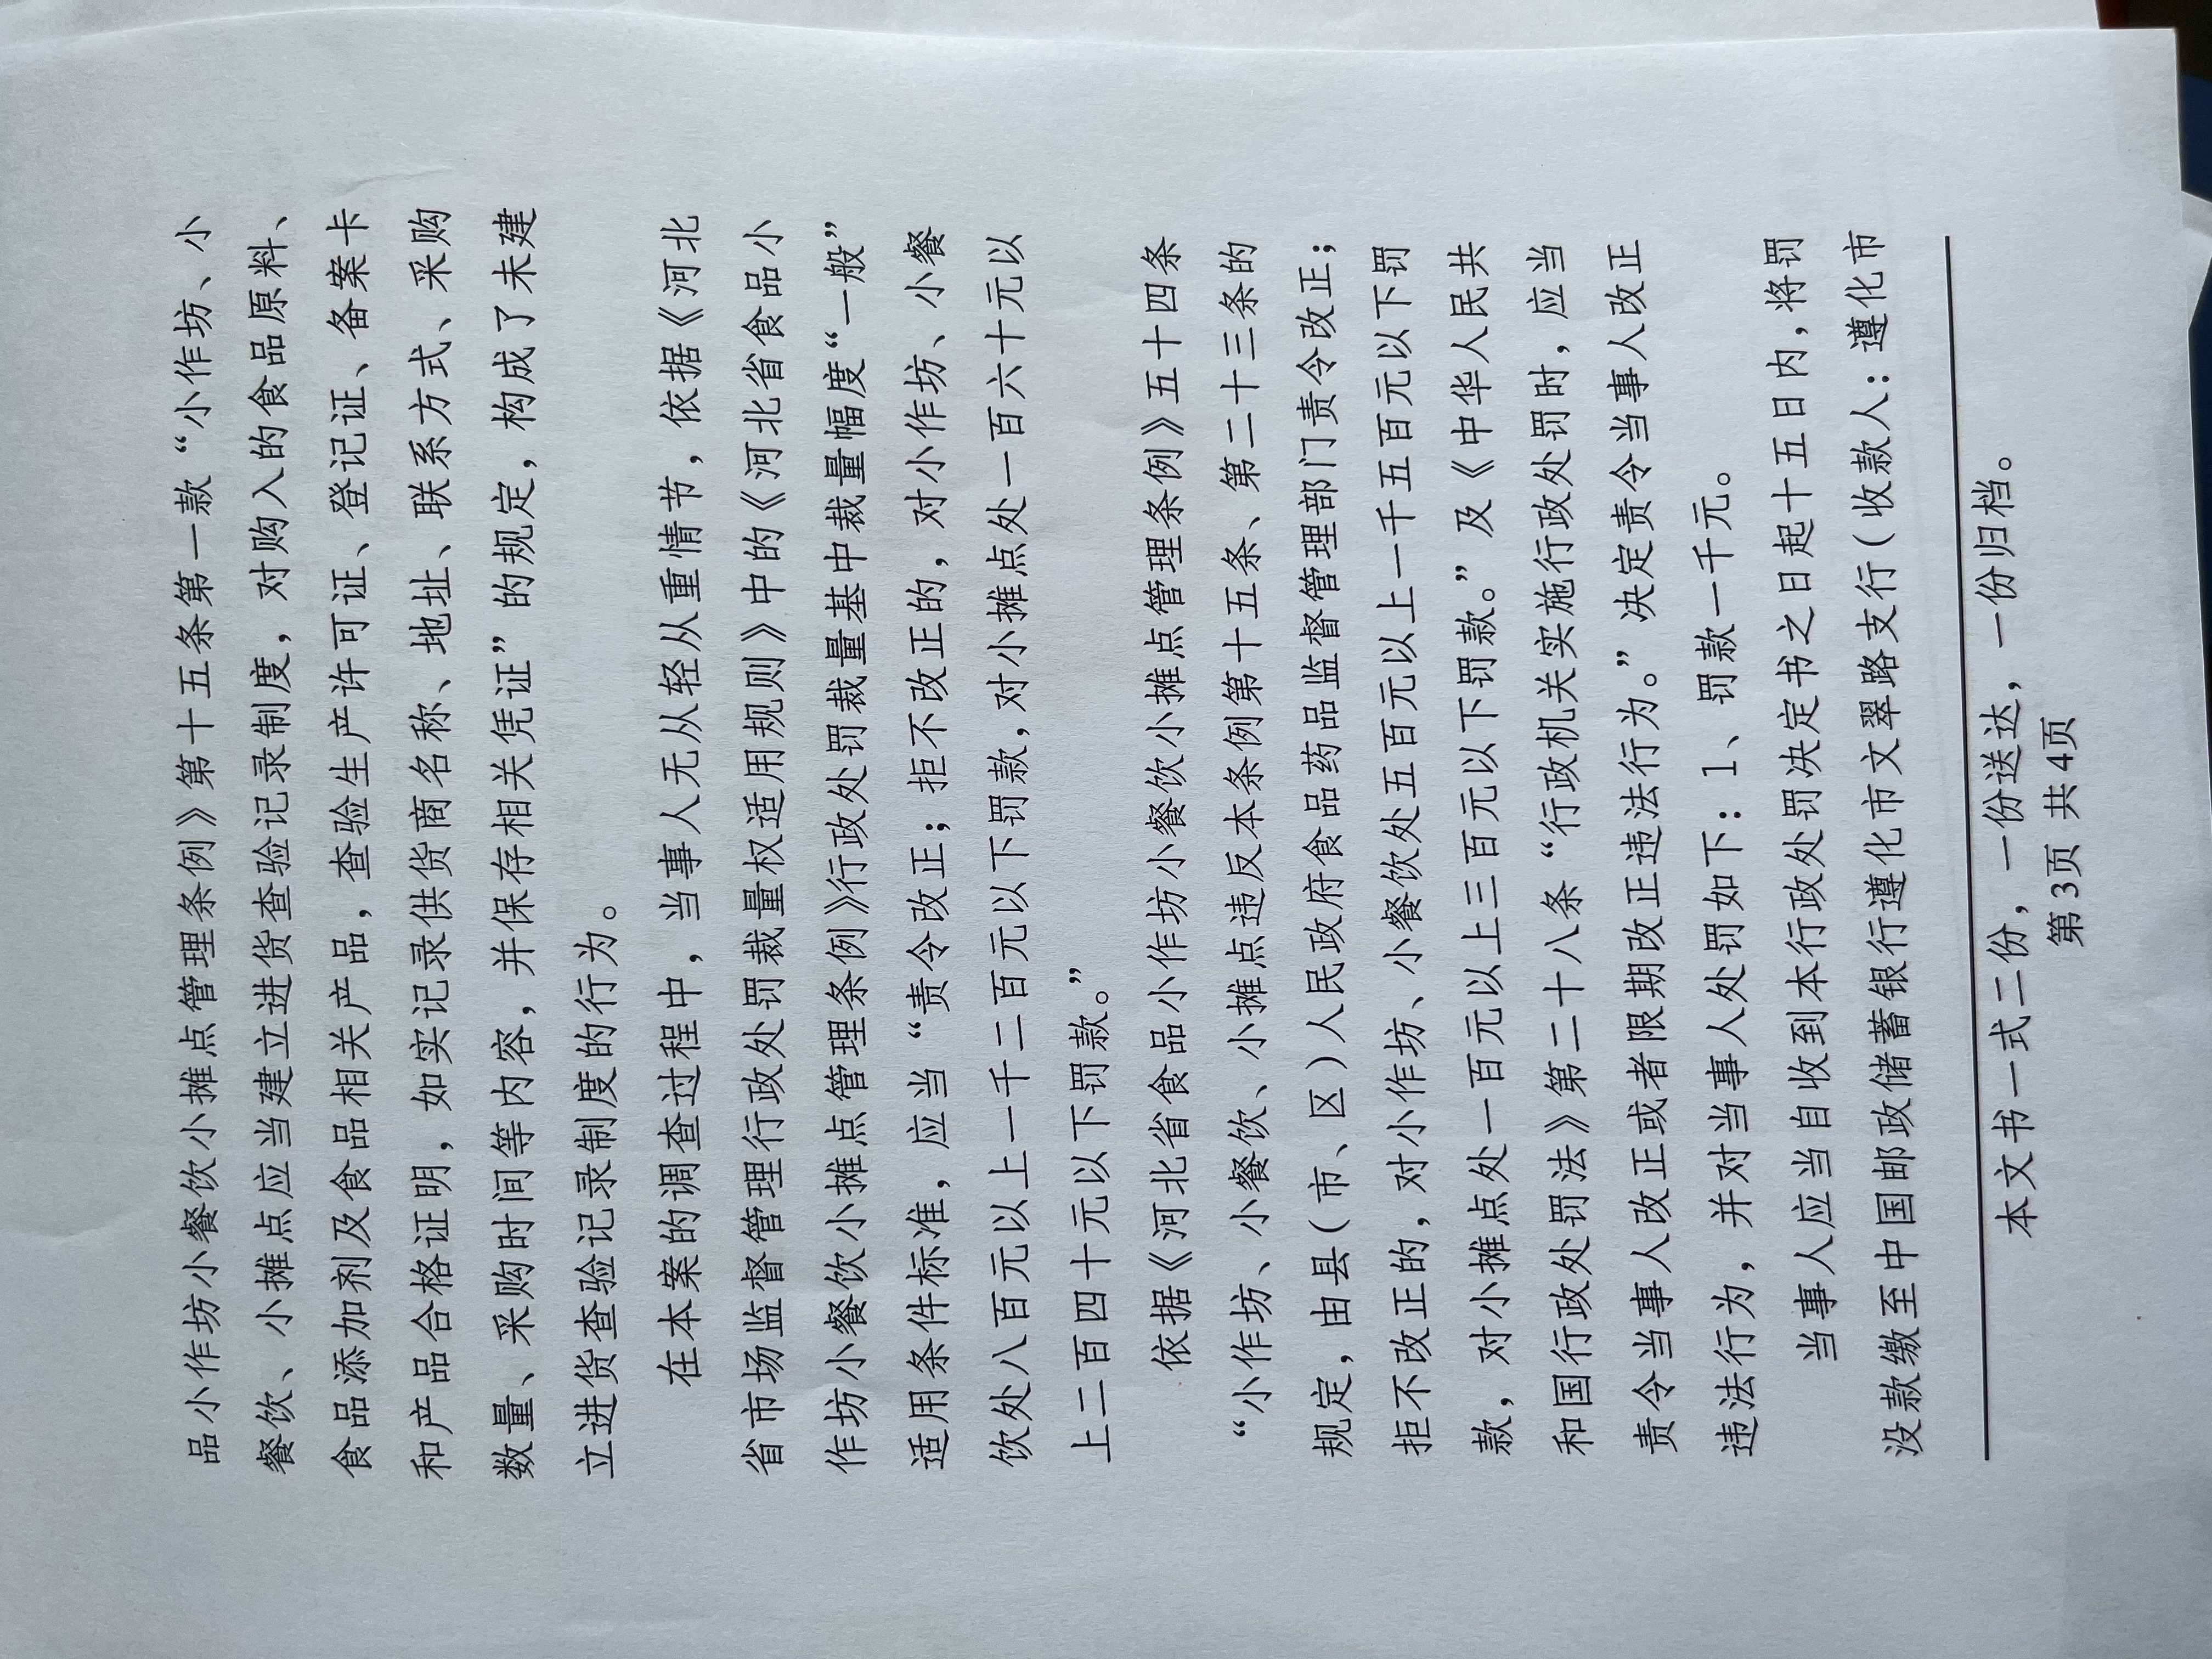 品小作坊小餐饮小摊点管理条例》第十五条第一款“小作坊、小
餐饮、小摊点应当建立进货查验记录制度，对购入的食品原料、
食品添加剂及食品相关产品，查验生产许可证、登记证、备案卡
和产品合格证明，如实记录供货商名称、地址、联系方式、采购
数量、采购时间等内容，并保存相关凭证”的规定，构成了未建
立进货查验记录制度的行为。
在本案的调查过程中，当事人无从轻从重情节，依据《河北
省市场监督管理行政处罚裁量权适用规则》中的《河北省食品小
作坊小餐饮小摊点管理条例》行政处罚裁量基中裁量幅度“一般”
适用条件标准，应当“责令改正；拒不改正的，对小作坊、小餐
饮处八百元以上一千二百元以下罚款，对小摊点处一百六十元以
上二百四十元以下罚款。”
依据《河北省食品小作坊小餐饮小摊点管理条例》五十四条
“小作坊、小餐饮、小摊点违反本条例第十五条、第二十三条的
规定，由县（市、区）人民政府食品药品监督管理部门责令改正；
拒不改正的，对小作坊、小餐饮处五百元以上一千五百元以下罚
款，对小摊点处一百元以上三百元以下罚款。”及《中华人民共
和国行政处罚法》第二十八条“行政机关实施行政处罚时，应当
责令当事人改正或者限期改正违法行为。”决定责令当事人改正
违法行为，并对当事人处罚如下：1、罚款一千元。
当事人应当自收到本行政处罚决定书之日起十五日内，将罚
没款缴至中国邮政储蓄银行遵化市文翠路支行（收款人：遵化市
本文书一式二份，一份送达，一份归档。
第3页 共4页